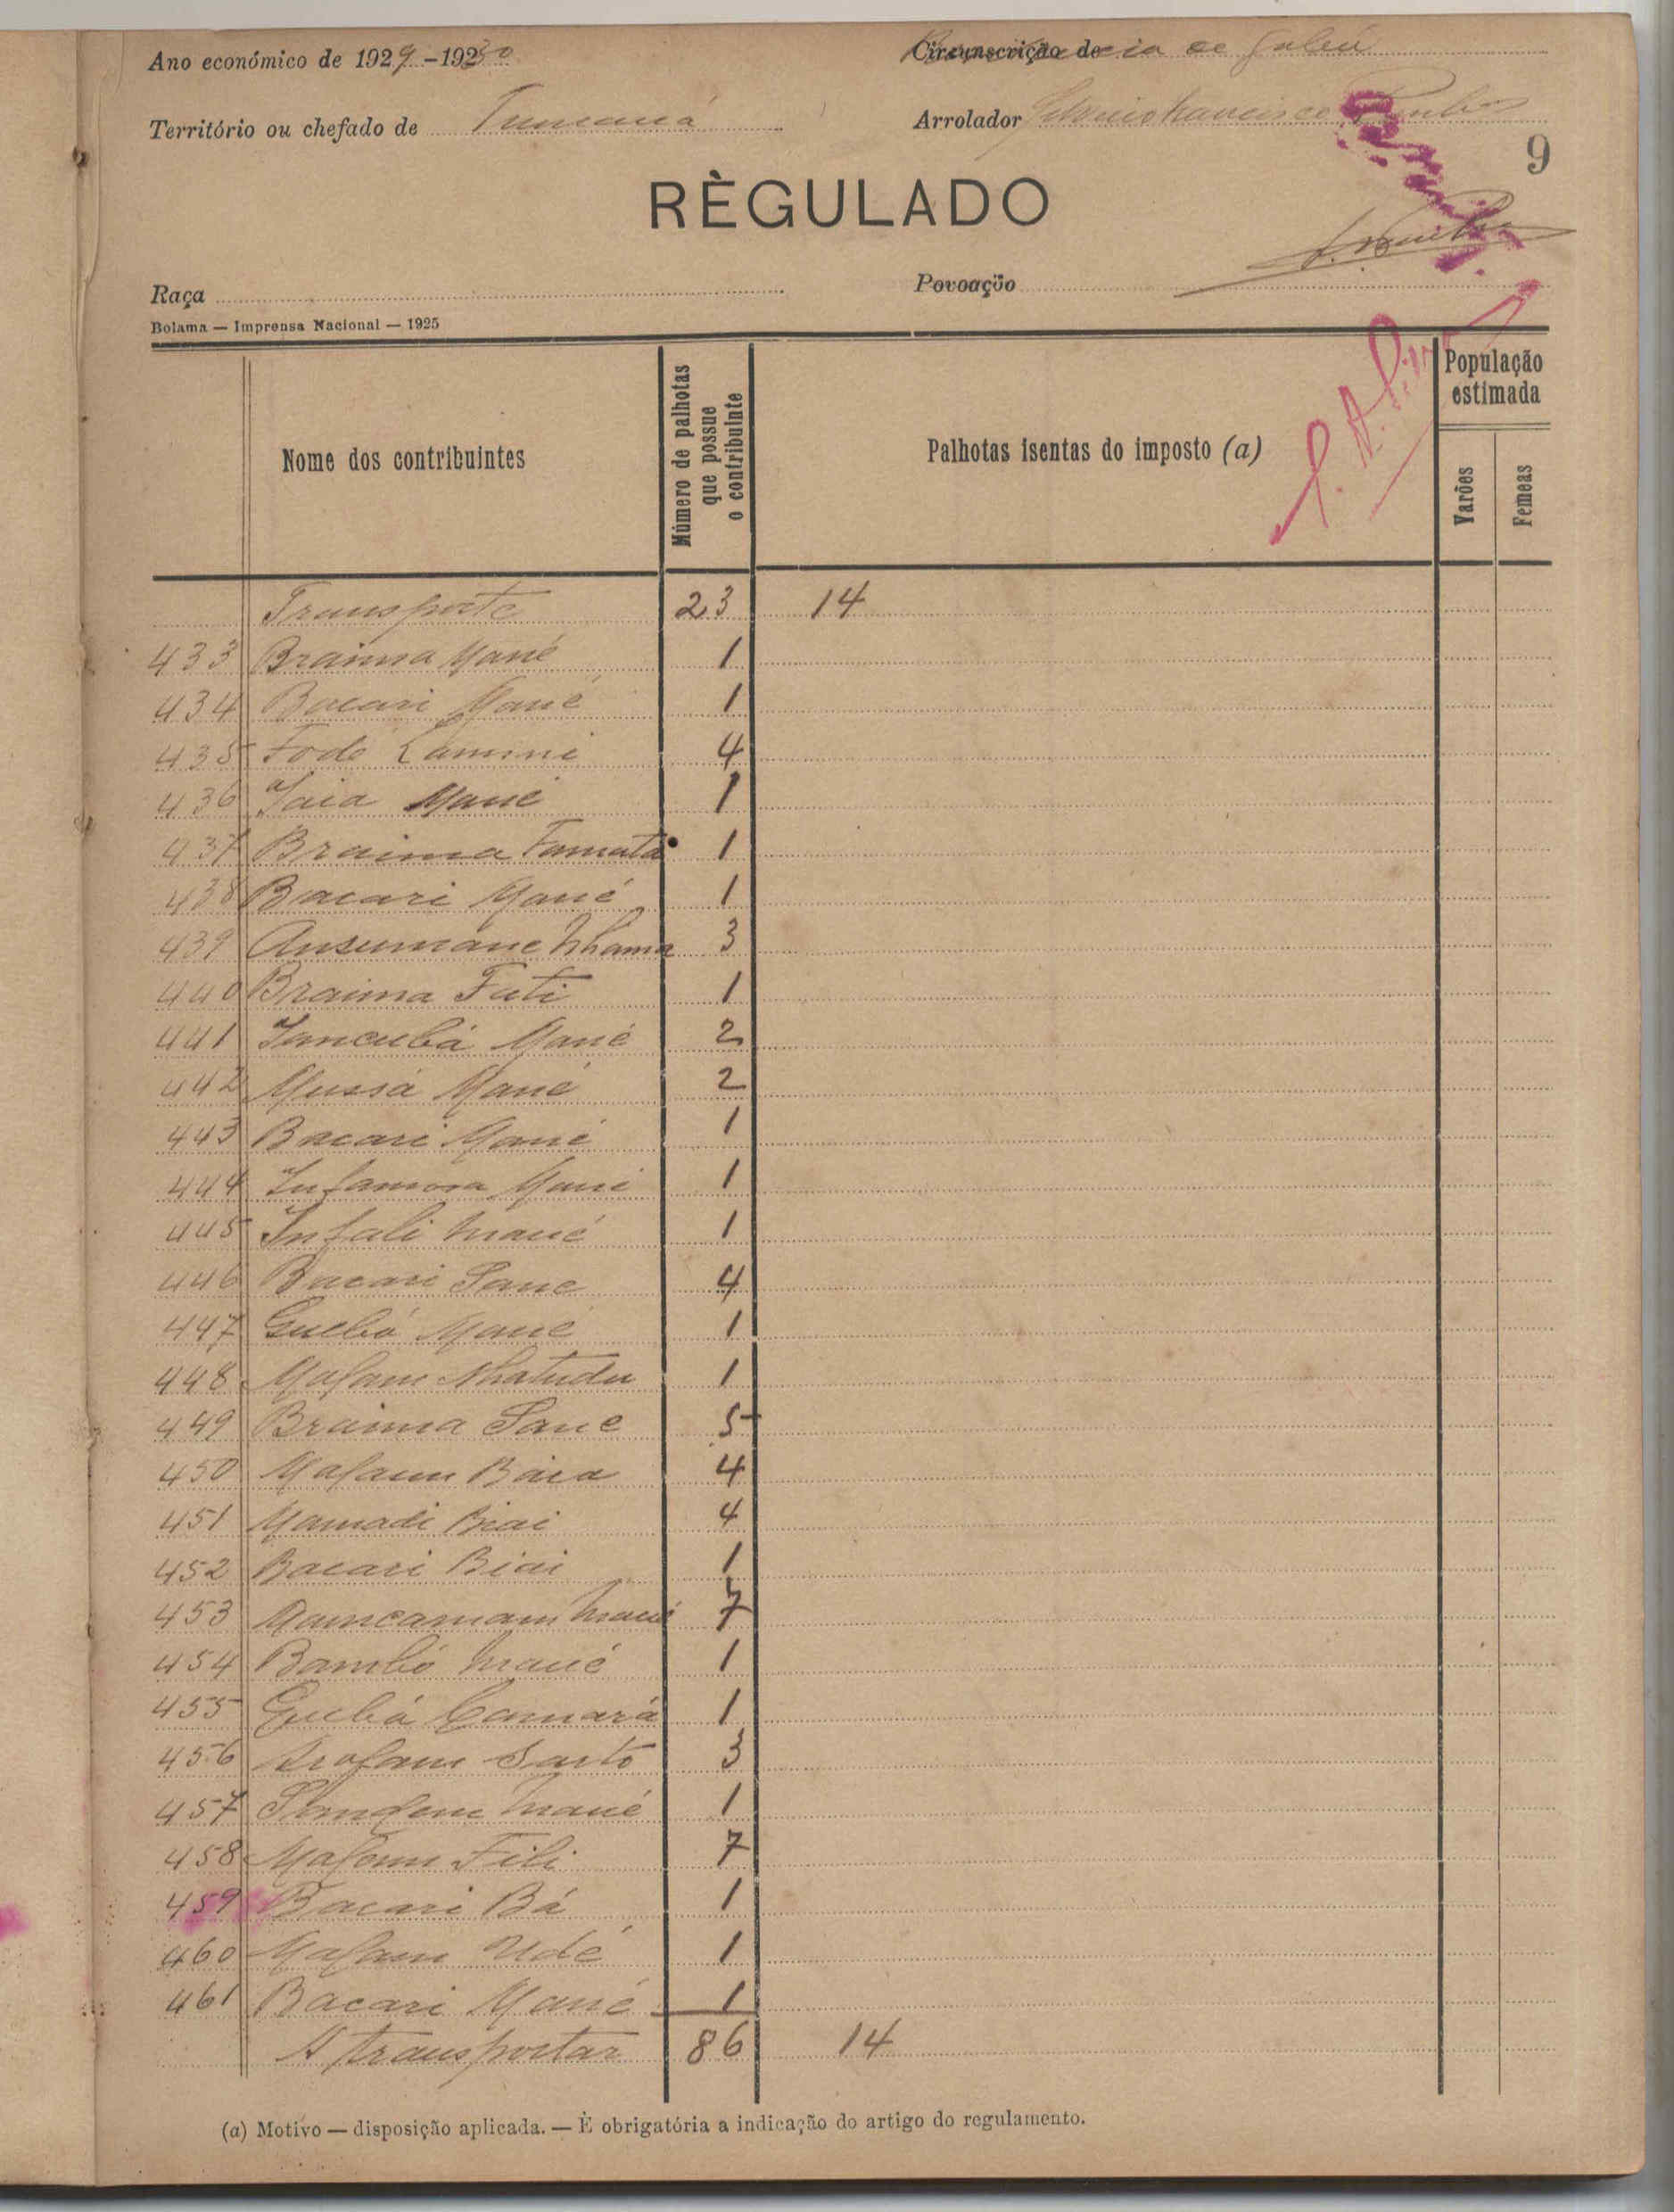 Ano económico de 1929-1930
Circunscrição de
Território ou chefado de Tumaná
Arrolador
9
RÈGULADO
Raça
Povoação
Bolama — Imprensa Nacional — 1925
Nome dos contribuintes
Número de palhotas que possue o contribuinte
Palhotas isentas do imposto (a)
População estimada
Varões
Femeas
Transporte 23 14
433 Braima Mané 1
434 Bacari Mané 1
435 Fodé Lamini 4
436 Jaia Mané 1
437 Braima Famatá 1
438 Bacari Mané 1
439 Ansumane Nhama 3
440 Braima Fati 1
441 Jancubá Mané 2
442 Mussá Mané 2
443 Bacari Mané 1
444 Infamora Mané 1
445 Infali Mané 1
446 Bacari Sane 4
447 Quebá Mané 1
448 Malam 1
449 Braima Sane 5
450 Malam 4
451 Mamadi Biai 4
452 Bacari Biai 1
453 Mané 7
454 Bambó Mané 1
455 Quebá Camará 1
456 3
457 Mané 1
458 Malam Fili 7
459 Bacari Bá 1
460 Malam Udé 1
461 Bacari Mané 1
A transportar 86 14
(a) Motivo — disposição aplicada. — È obrigatória a indicação do artigo do regulamento.